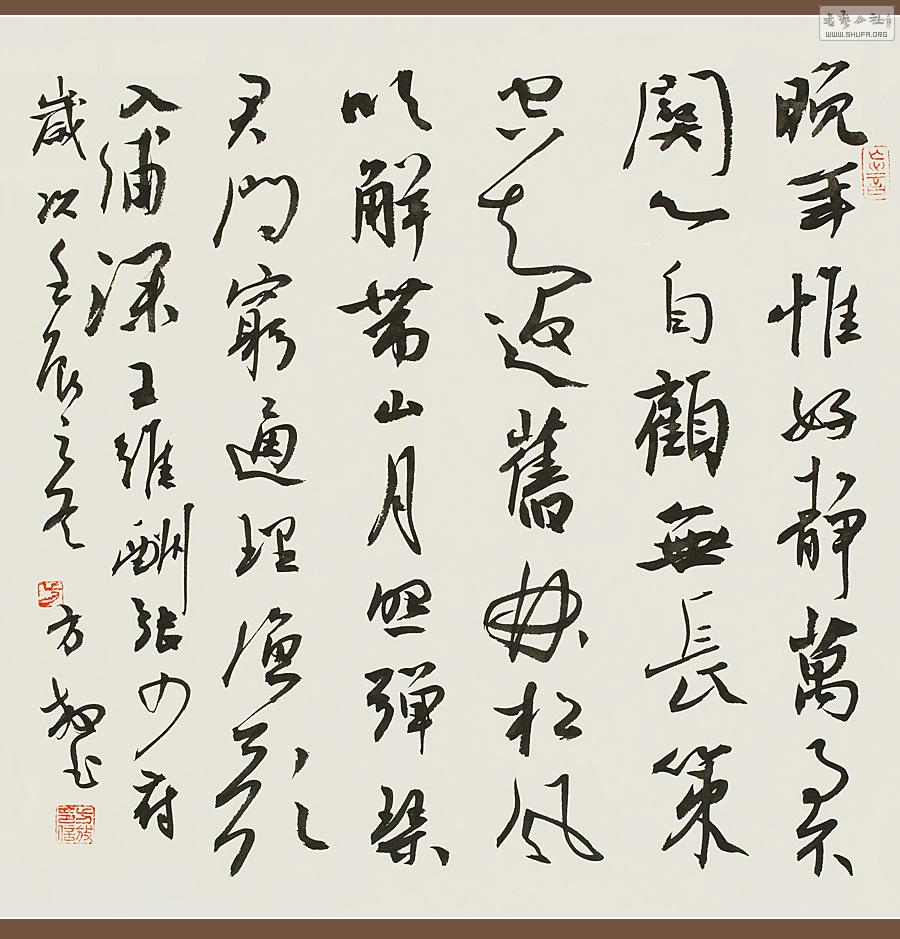 晚年惟好靜萬事不
關心自顧無長策
空知返舊林松風
吹解帶山月照彈琴
君問窮通理漁歌
入浦深王維酬張少府
歲次壬辰之冬方放書
书艺公社
WWW.SHUFA.ORG